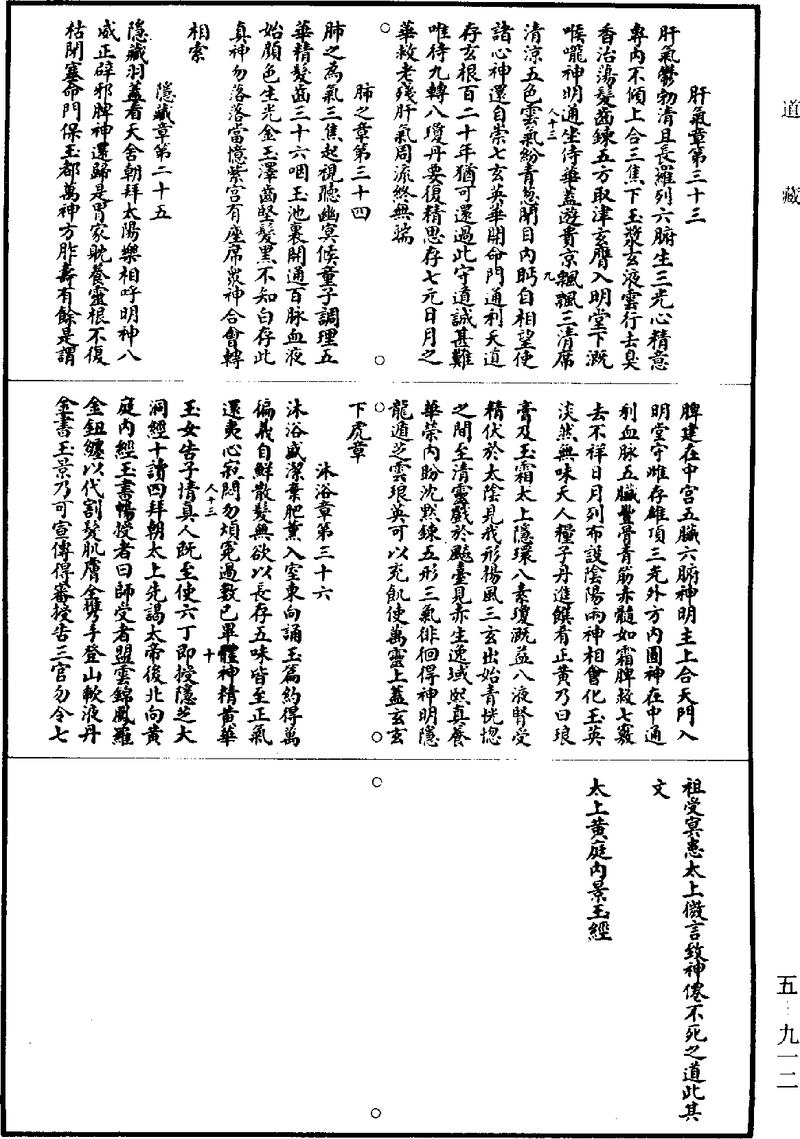 道藏
肝氣章第三十三
肝氣鬱勃清且長羅列六腑生三光心精意
專內不傾上合三焦下玉漿玄液雲行去臭
香治蕩髮齒鍊五方取津玄膺入明堂下溉
喉嚨神明通坐侍華蓋遊貴京飄飄三清席
人十三
九
清涼五色雲氣紛青葱閉目內眄自相望使
諸心神還自崇七玄英華開命門通利天道
存玄根百二十年猶可還過此守道誠甚難
唯待九轉八瓊丹要復精思存七元日月之
華救老殘肝氣周流終無端
肺之章第三十四
肺之為氣三焦起視聽幽冥候童子調理五
華精髮齒三十六咽玉池裏開通百脉血液
始顏色生光金玉澤齒堅髮黑不知白存此
真神勿落落當憶紫宮有座席眾神合會轉
相索
隱藏章第二十五
隱藏羽蓋看天舍朝拜太陽樂相呼明神八
威正辟邪脾神還歸是胃家耽養靈根不復
枯閉塞命門保玉都萬神方胙壽有餘是謂
脾建在中宮五臟六腑神明主上合天門入
明堂守雌存雄頂三光外方內圓神在中通
利血脉五臟豐骨青筋赤髓如霜脾救七竅
去不祥日月列布設陰陽兩神相會化玉英
淡然無味天人糧子丹進饌肴正黃乃曰琅
膏及玉霜太上隱環八素瓊溉益八液腎受
精伏於太陰見我形楊風三玄出始青恍惚
之間至清靈戲於飈臺見赤生逸域熙真養
華榮內盼沈默鍊五形三氣徘徊得神明隱
龍遁芝雲琅英可以充飢使萬靈上蓋玄玄
下虎章
沐浴章第三十六
沐浴盛潔棄肥薰入室東向誦玉篇約得萬
徧義自鮮散髮無欲以長存五味皆至正氣
還夷心寂悶勿煩冤過數已畢體神精黃華
人十三
十
玉女告子情真人既至使六丁即授隱芝大
洞經十讀四拜朝太上先謁太帝後北向黃
庭內經玉書暢授者曰師受者盟雲錦鳳羅
金鈕纏以代割髮肌膚全携手登山歃液丹
金書玉景乃可宣傳得審授告三官勿令七
祖受冥患太上微言致神僊不死之道此其
文
太上黄庭內景玉經
五–九一二